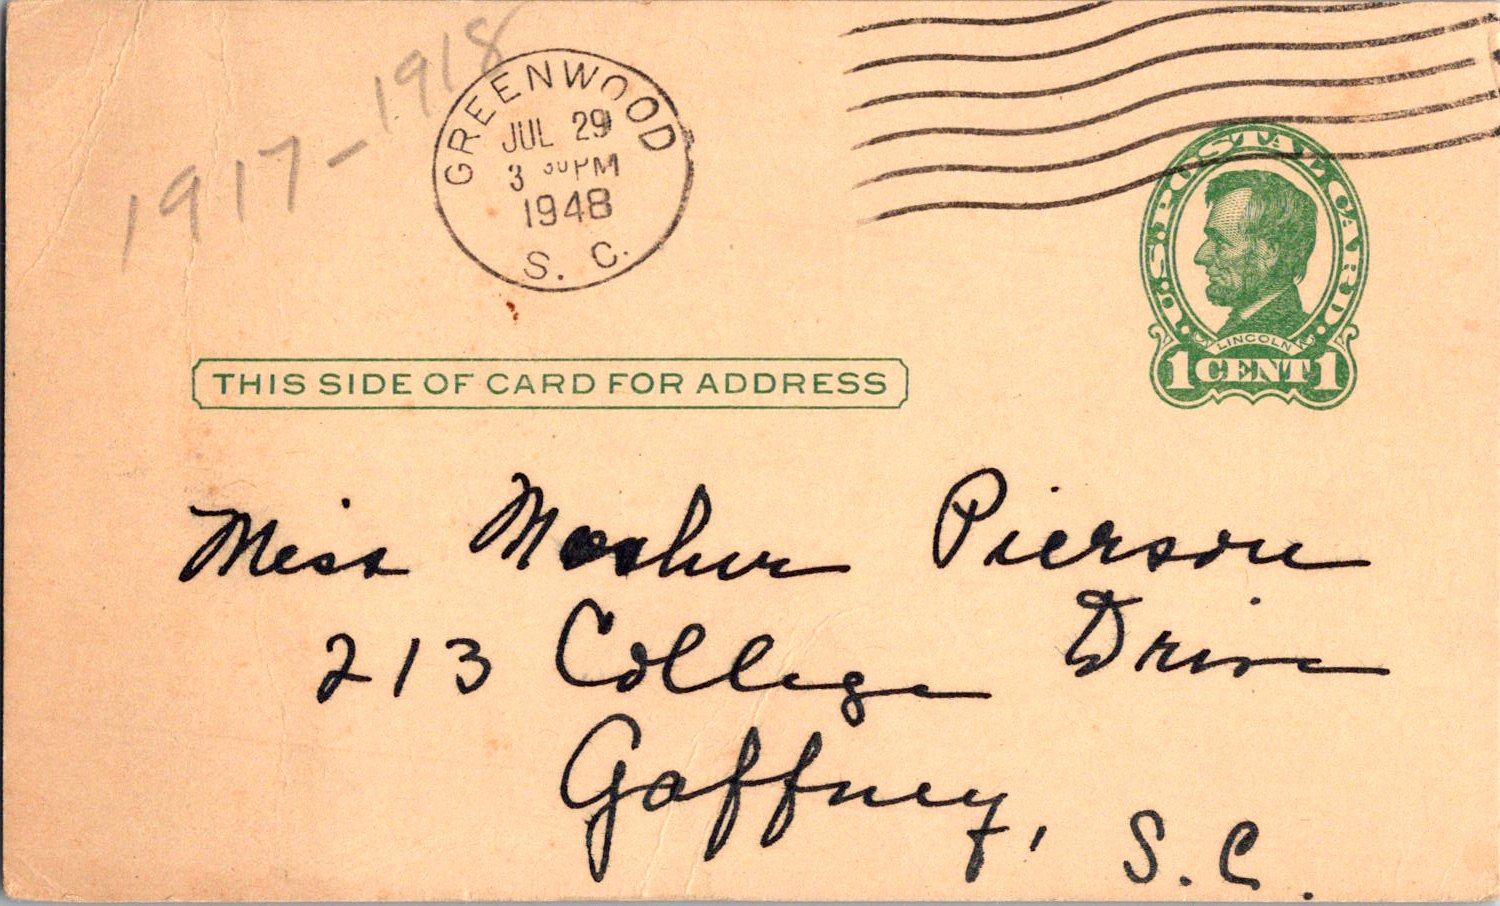 1917-1918
GREENWOOD
JUL 29
3 30 PM
1948
S. C.
U.S. POSTAL CARD.
LINCOLN
1 CENT 1
THIS SIDE OF CARD FOR ADDRESS
Miss Pierson
213 College Drive
Gaffney, S.C.